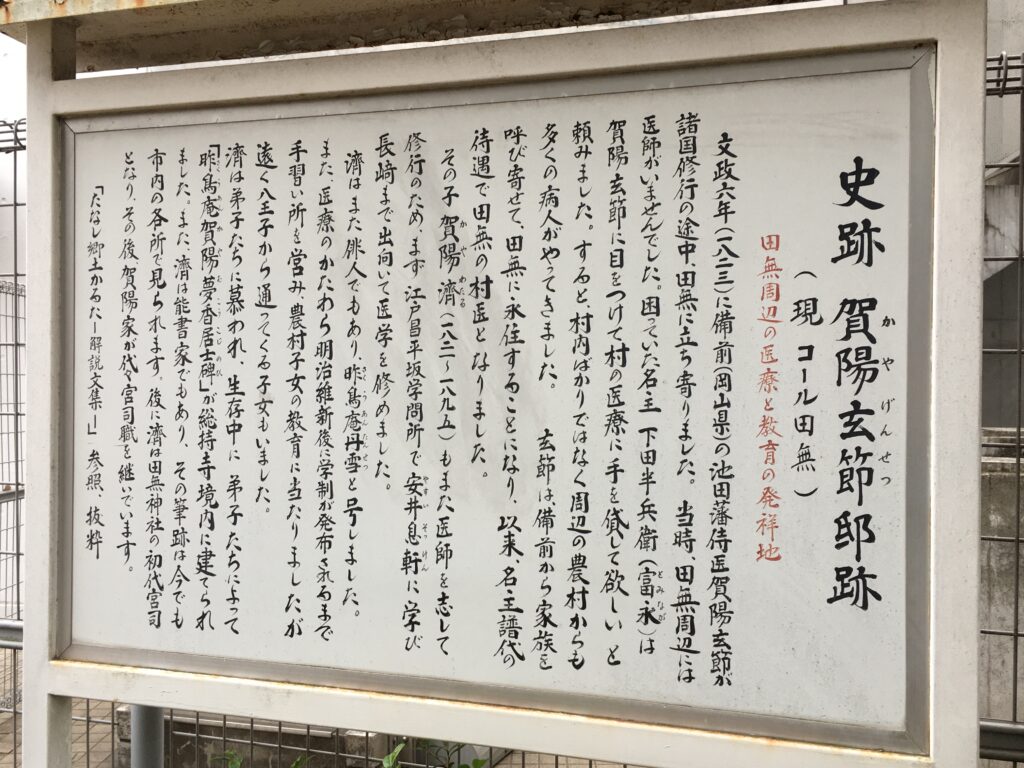 史跡 賀陽玄節邸跡
かやげんせつ
(現 コール田無)
田無周辺の医療と教育の発祥地
文政六年(一八二三)に備前(岡山県)の池田藩侍医賀陽玄節が
諸国修行の途中、田無に立ち寄りました。当時、田無周辺には
医師がいませんでした。困っていた名主 下田半兵衛(富永)は
とみなが
賀陽玄節に目をつけて村の医療に手を貸して欲しい と
頼みました。すると、村内ばかりではなく周辺の農村からも
多くの病人がやってきました。 玄節は備前から家族を
呼び寄せて、田無に永住することになり、以来、名主譜代の
待遇で田無の村医となりました。
その子 賀陽 済(一八二一〜一八九五)もまた医師を志して
かや わたる
修行のため、まず 江戸昌平坂学問所で安井息軒に学び
やすい そっけん
長﨑まで出向いて医学を修めました。
済はまた俳人でもあり、昨鳥庵丹雪と号しました。
さくちょうあんたんせつ
また、医療のかたわら明治維新後に学制が発布されるまで
手習い所を営み農村子女の教育に当たりましたが
遠く八王子から通ってくる子女もいました。
済は弟子たちに慕われ、生存中に 弟子たちによって
「昨鳥庵賀陽夢香居士碑」が総持寺境内に建てられ
ました。また、済は能書家でもあり、その筆跡は今でも
市内の各所で見られます。後に済は田無神社の初代宮司
となり、その後賀陽家が代々宮司職を継いでいます。
「たなし郷土かるたー解説文集ー」参照、抜粋